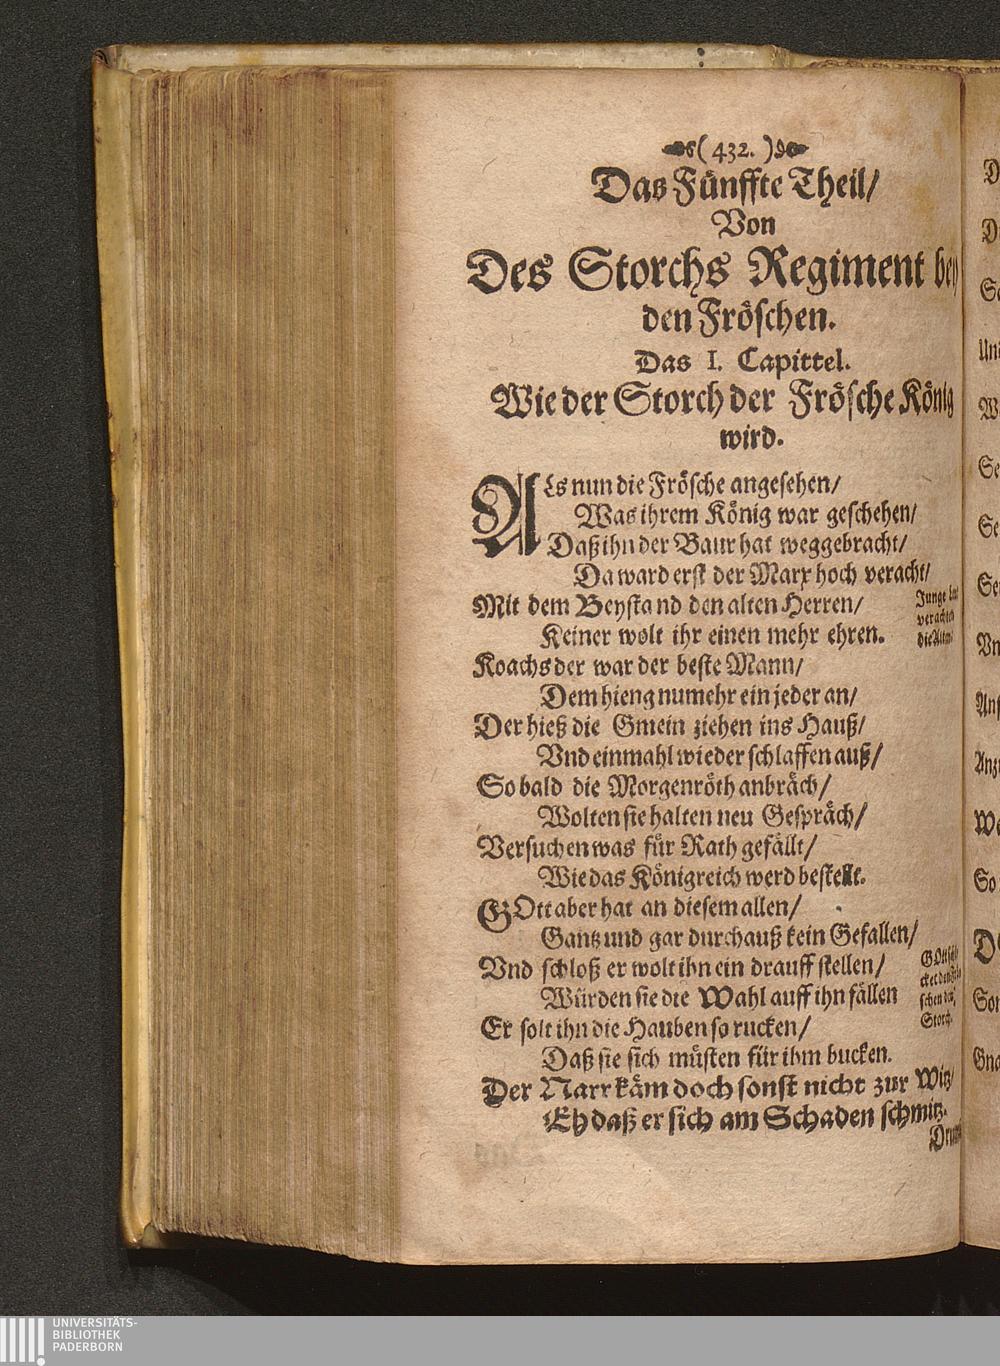 ( 432. )
Das Fünffte Theil/
Von
Des Storchs Regiment bey
den Fröschen.
Das I. Capittel.
Wie der Storch der Frösche König
wird.
Als nun die Frösche angesehen/
Was ihrem König war geschehen/
Daß ihn der Baur hat weggebracht/
Da ward erst der Marx hoch veracht/
Mit dem Beystand den alten Herren/
Keiner wolt ihr einen mehr ehren.
Junge
verachten
die Alten
Koachs der war der beste Mann/
Dem hieng numehr ein jeder an/
Der hieß die Gmein ziehen ins Hauß/
Vnd einmahl wieder schlaffen auß/
So bald die Morgenröth anbräch/
Wolten sie halten neu Gespräch/
Versuchen was für Rath gefällt/
Wie das Königreich werd bestellt.
GOtt aber hat an diesem allen/
Gantz und gar durchauß kein Gefallen/
Vnd schloß er wolt ihn ein drauff stellen/
Würden sie die Wahl auff ihn fällen
Er solt ihn die Hauben so rucken/
Daß sie sich müsten für ihm bucken.
Der Narr käm doch sonst nicht zur Witz/
Eh daß er sich am Schaden schmitz.
GOtt
schen den
Storch.
D
D
Se
Und
W
Se
Se
Se
Vn
Anf
Anz
We
So
D
Son
Gna
UNIVERSITÄTS-
BIBLIOTHEK
PADERBORN